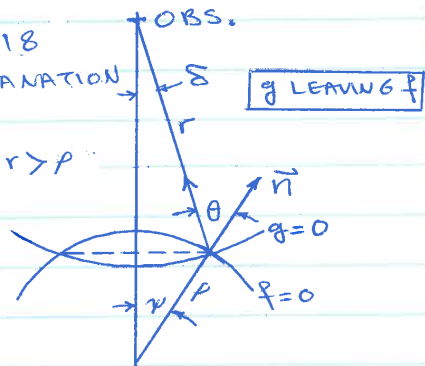 OBS.
18
ANATION
δ
g LEAVING f
r
r > ρ
n
θ
g = 0
f = 0
ψ
ρ